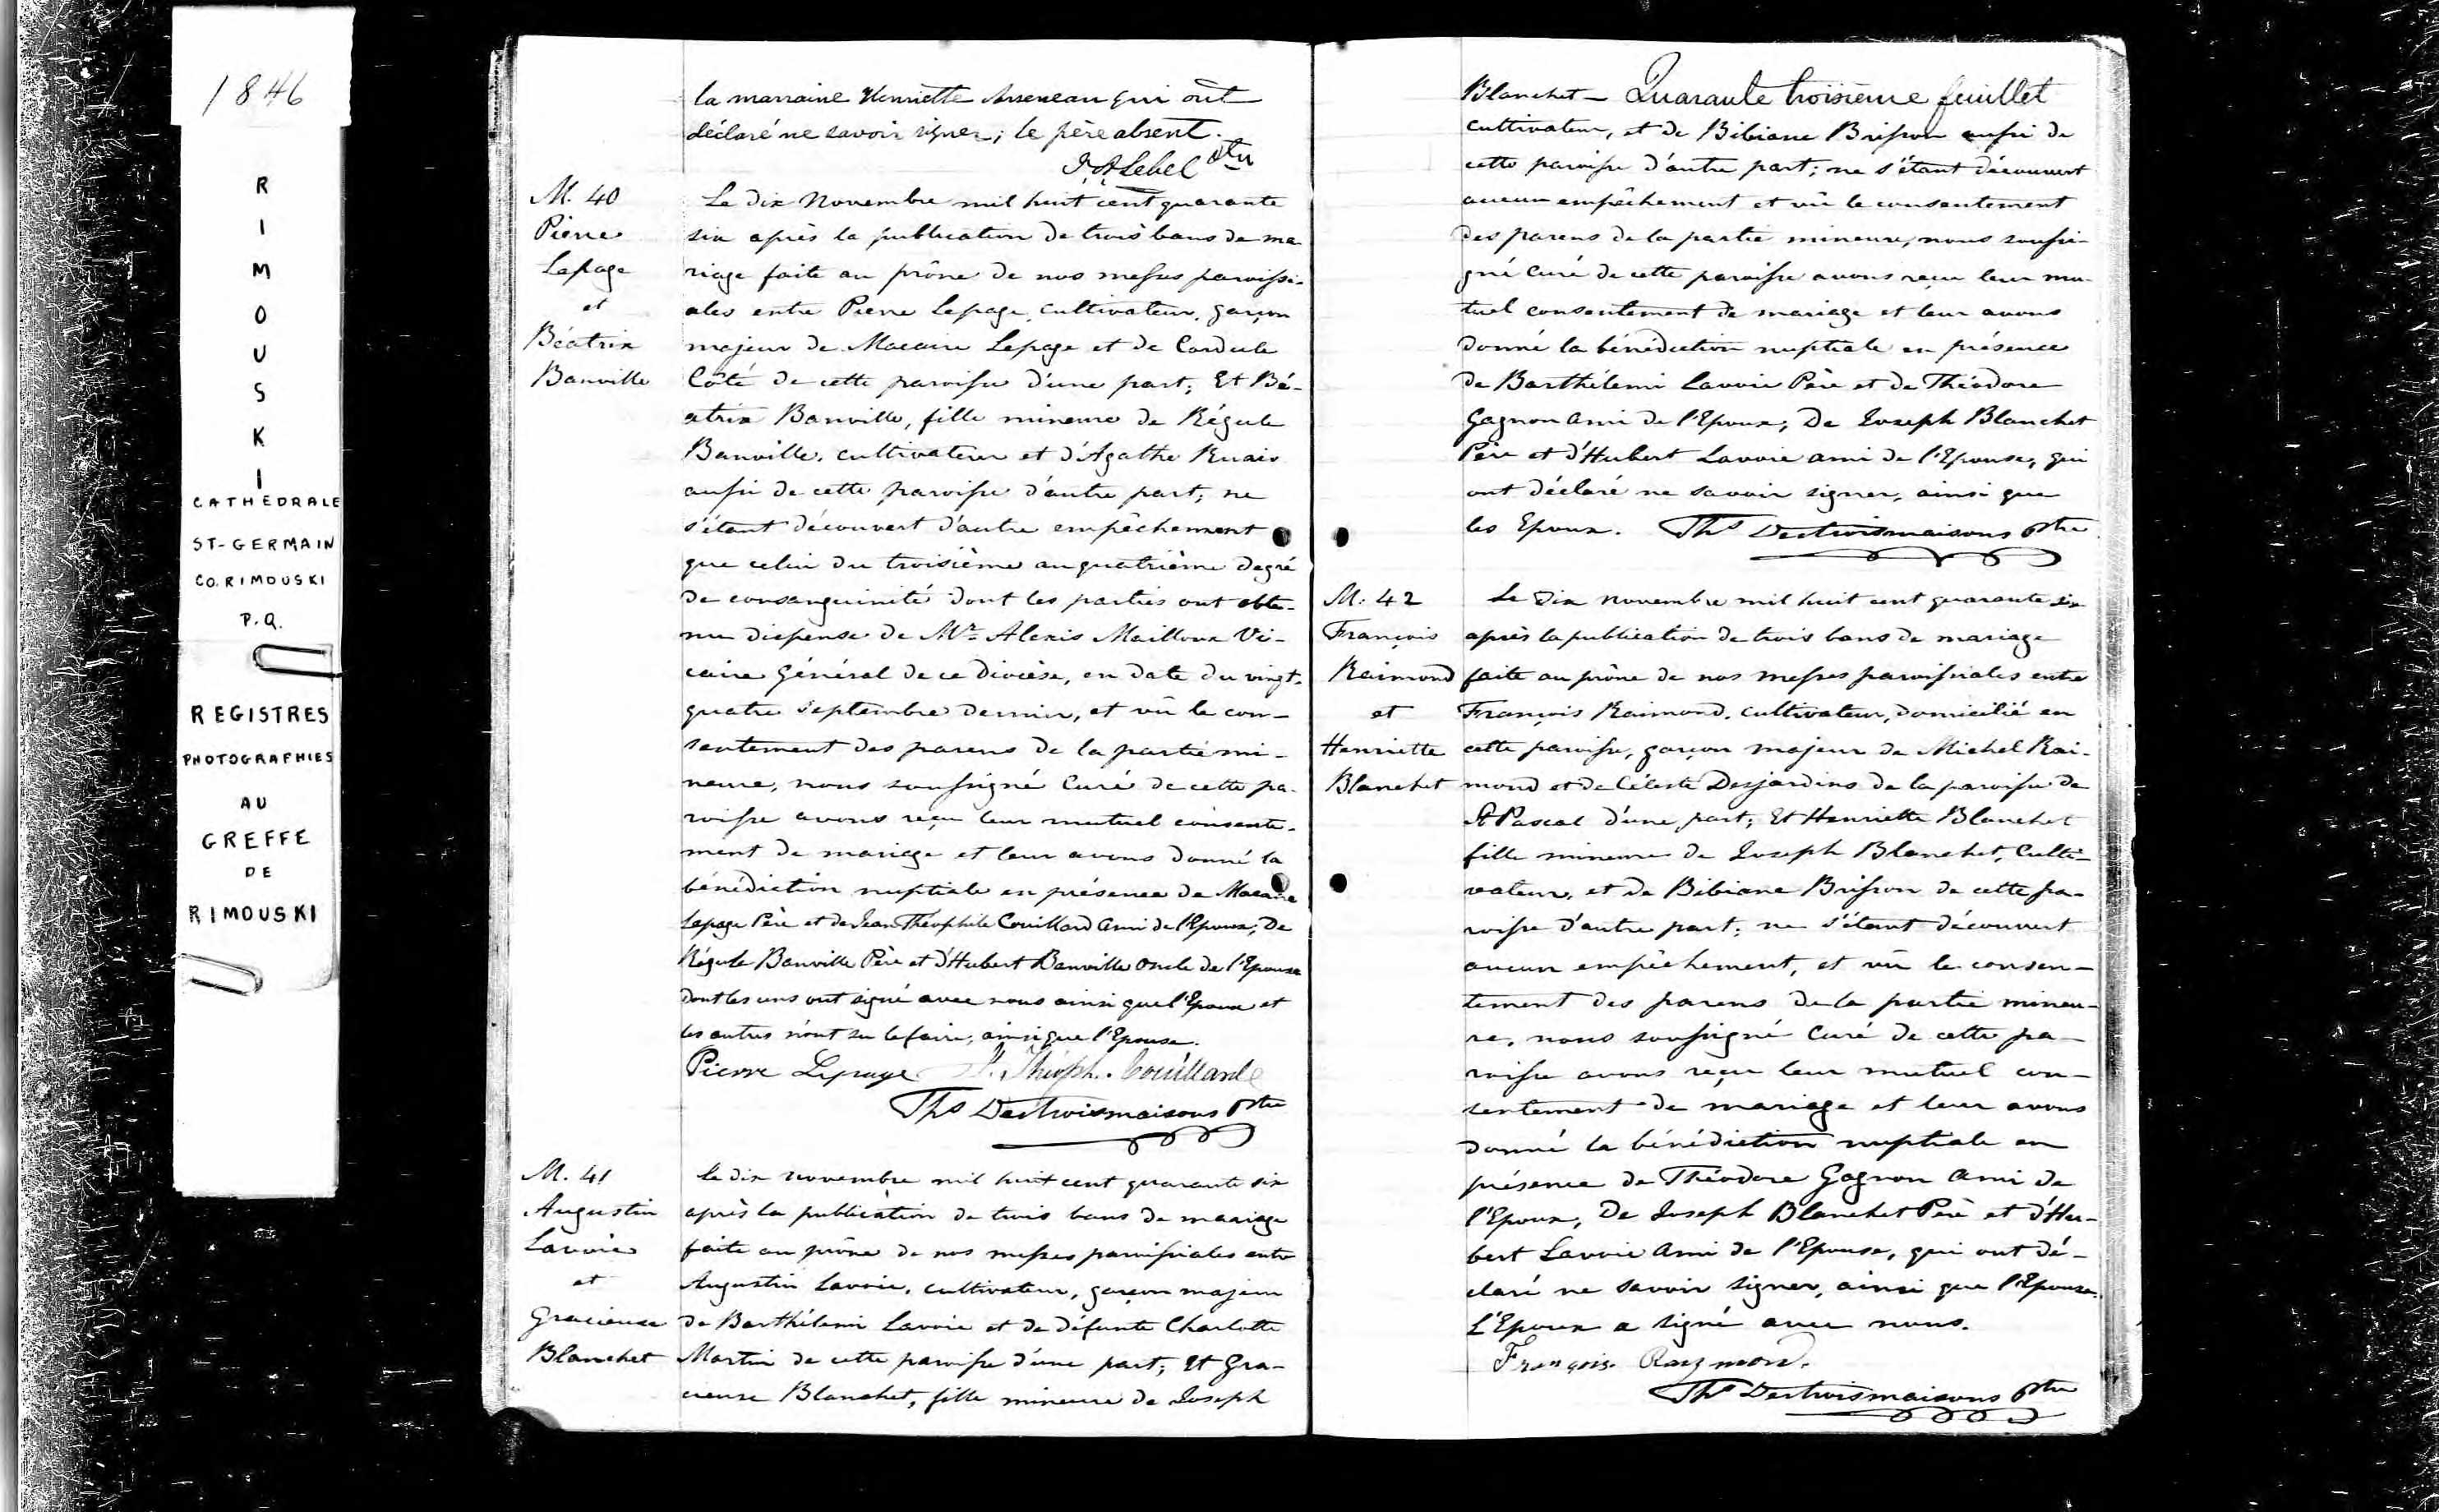 1846
R
I
M
O
U
S
K
I
CATHEDRALE
ST-GERMAIN
CO. RIMOUSKI
P.Q.
REGISTRES
PHOTOGRAPHIES
AU
GREFFE
DE
RIMOUSKI
la marraine Henriette Arseneau qui ont
déclaré ne savoir signer; le père absent.
J. A. Lebel Ptre
M. 40
Pierre
Lepage
et
Béatrix
Banville
Le dix Novembre mil huit cent quarante
six après la publication de trois bans de ma
riage faite au prône de nos messes paroissi-
ales entre Pierre Lepage, cultivateur, garçon
majeur de Macaire Lepage et de Cordule
Côté de cette paroisse d'une part; Et Bé-
atrix Banville, fille mineure de Régule
Banville, cultivateur et d'Agathe Ruais
aussi de cette paroisse d'autre part; ne
s'étant découvert d'autre empêchement
que celui du troisième au quatrième degré
de consanguinité dont les parties ont obte-
nu dispense de Mr. Alexis Mailloux Vi-
caire Général de ce Diocèse, en date du vingt-
quatre Septembre dernier, et vû le con-
sentement des parens de la partie mi-
neure, nous soussigné Curé de cette pa-
roisse avons reçu leur mutuel consente-
ment de mariage et leur avons donné la
bénédiction nuptiale en présence de Macaire
Lepage Père et de Jean Théophile Couillard ami de l'Epoux; De
Régule Banville Père et d'Hubert Banville Oncle de l'Epouse
dont les uns ont signé avec nous ainsi que l'Epoux et
les autres n'ont su le faire, ainsi que l'Epouse.
Pierre Lepage J. Théoph. Couillard
Ths Destroismaisons Ptre
M. 41
Augustin
Lavoie
et
Gracieuse
Blanchet
Le dix novembre mil huit cent quarante six
après la publication de trois bans de mariage
faite au prône de nos messes paroissiales entre
Augustin Lavoie, cultivateur, garçon majeur
de Barthélemi Lavoie et de défunte Charlotte
Martin de cette paroisse d'une part; Et Gra-
cieuse Blanchet, fille mineure de Joseph
Blanchet - Quarante troisième feuillet
cultivateur, et de Bibiane Brisson aussi de
cette paroisse d'autre part; ne s'étant découvert
aucun empêchement et vû le consentement
des parens de la partie mineure, nous soussi-
gné Curé de cette paroisse avons reçu leur mu-
tuel consentement de mariage et leur avons
donné la bénédiction nuptiale en présence
de Barthélemi Lavoie Père et de Théodore
Gagnon ami de l'Epoux; De Joseph Blanchet
Père et d'Hubert Lavoie ami de l'Epouse, qui
ont déclaré ne savoir signer, ainsi que
les Epoux. Ths Destroismaisons Ptre
M. 42
François
Raimond
et
Henriette
Blanchet
Le Dix novembre mil huit cent quarante six
après la publication de trois bans de mariage
faite au prône de nos messes paroissiales entre
François Raimond, cultivateur, domicilié en
cette paroisse, garçon majeur de Michel Rai-
mond et de Céleste Desjardins de la paroisse de
St Pascal d'une part; Et Henriette Blanchet
fille mineure de Joseph Blanchet, Culti-
vateur, et de Bibiane Brisson de cette pa-
roisse d'autre part; ne s'étant découvert
aucun empêchement, et vû le consen-
tement des parens de la partie mineu-
re, nous soussigné Curé de cette pa-
roisse avons reçu leur mutuel con-
sentement de mariage et leur avons
donné la bénédiction nuptiale en
présence de Théodore Gagnon ami de
l'Epoux, De Joseph Blanchet Père et d'Hu-
bert Lavoie ami de l'Epouse, qui ont dé-
claré ne savoir signer, ainsi que l'Epouse.
L'Epoux a signé avec nous.
François Raymond.
Ths Destroismaisons Ptre